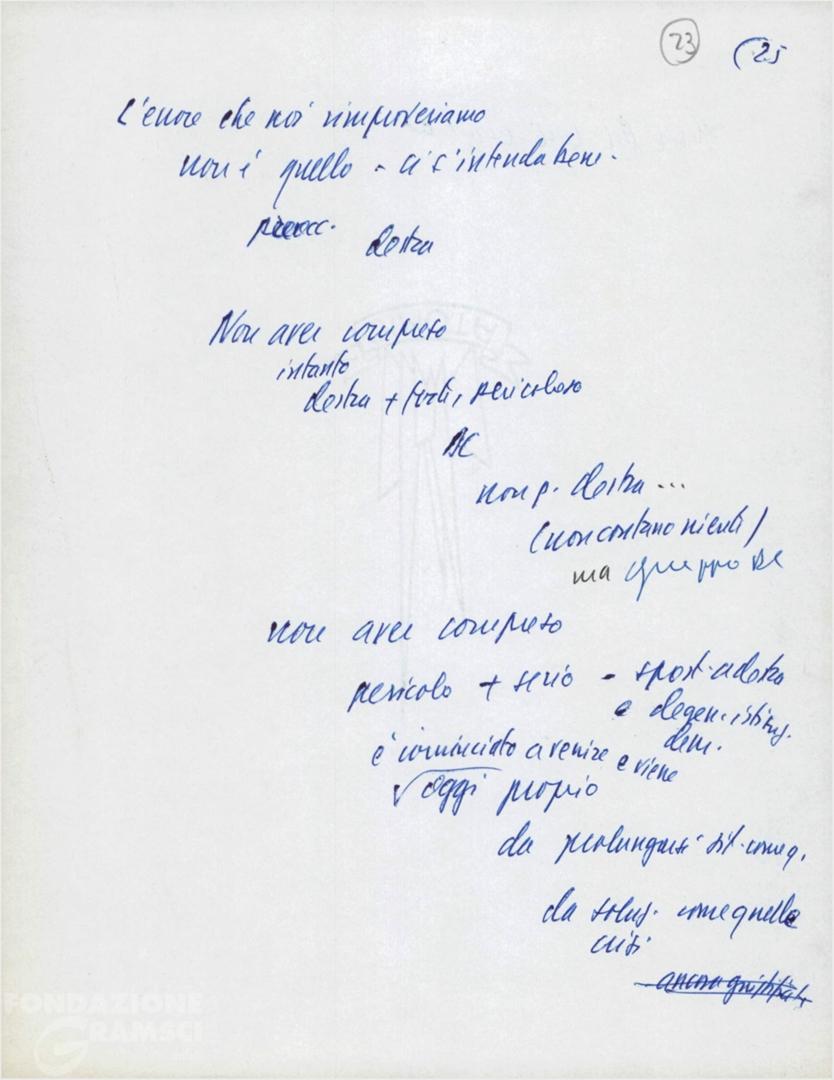 23 (25
L'errore che noi rimproveriamo
non è quello - ci s'intenda bene.
preocc.
destra
Non aver compreso
intanto
destra + forte, pericolosa
DC
non p. destra ...
(non contano niente)
ma gruppo DC
non aver compreso
pericolo + serio - spost. a destra
e degen. istituz.
dem.
è cominciato a venire e viene
oggi proprio
da prolungarsi sit. come q.
da soluz. come quelle
crisi
ancora
FONDAZIONE
GRAMSCI